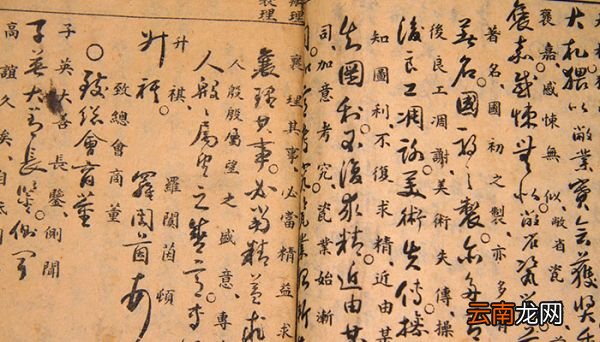 大札猥以敝業賽會獲獎
襃嘉感悚無似敝省瓷
襃嘉感悚無似敝省瓷業
著名國初之製亦多
著名國初之製亦多
後良工凋謝美術失傳操
後良工凋謝美術失傳操
知圖利不復求精近由某
知圖利不復求精近由某
司加意考究瓷業始漸
辦理
襄理
襄理其事必當精益求
襄理其事必當精益求
人殷殷屬望之盛意專
人殷殷屬望之盛意專
升祺 羅閬茵頓
升祺 羅閬茵
致總會商董
致總會商董
子英大善長鑒側聞
子英大善長鑒側聞
高誼久矣自
云南龙网